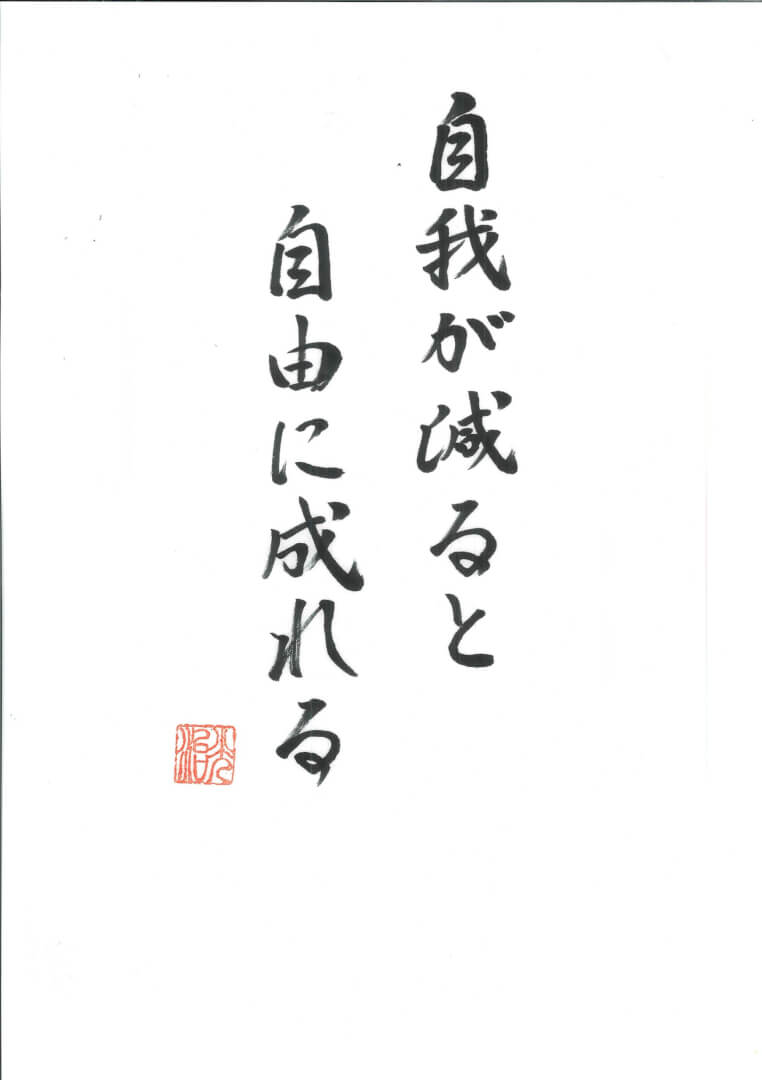 自我が減ると
自由に成れる